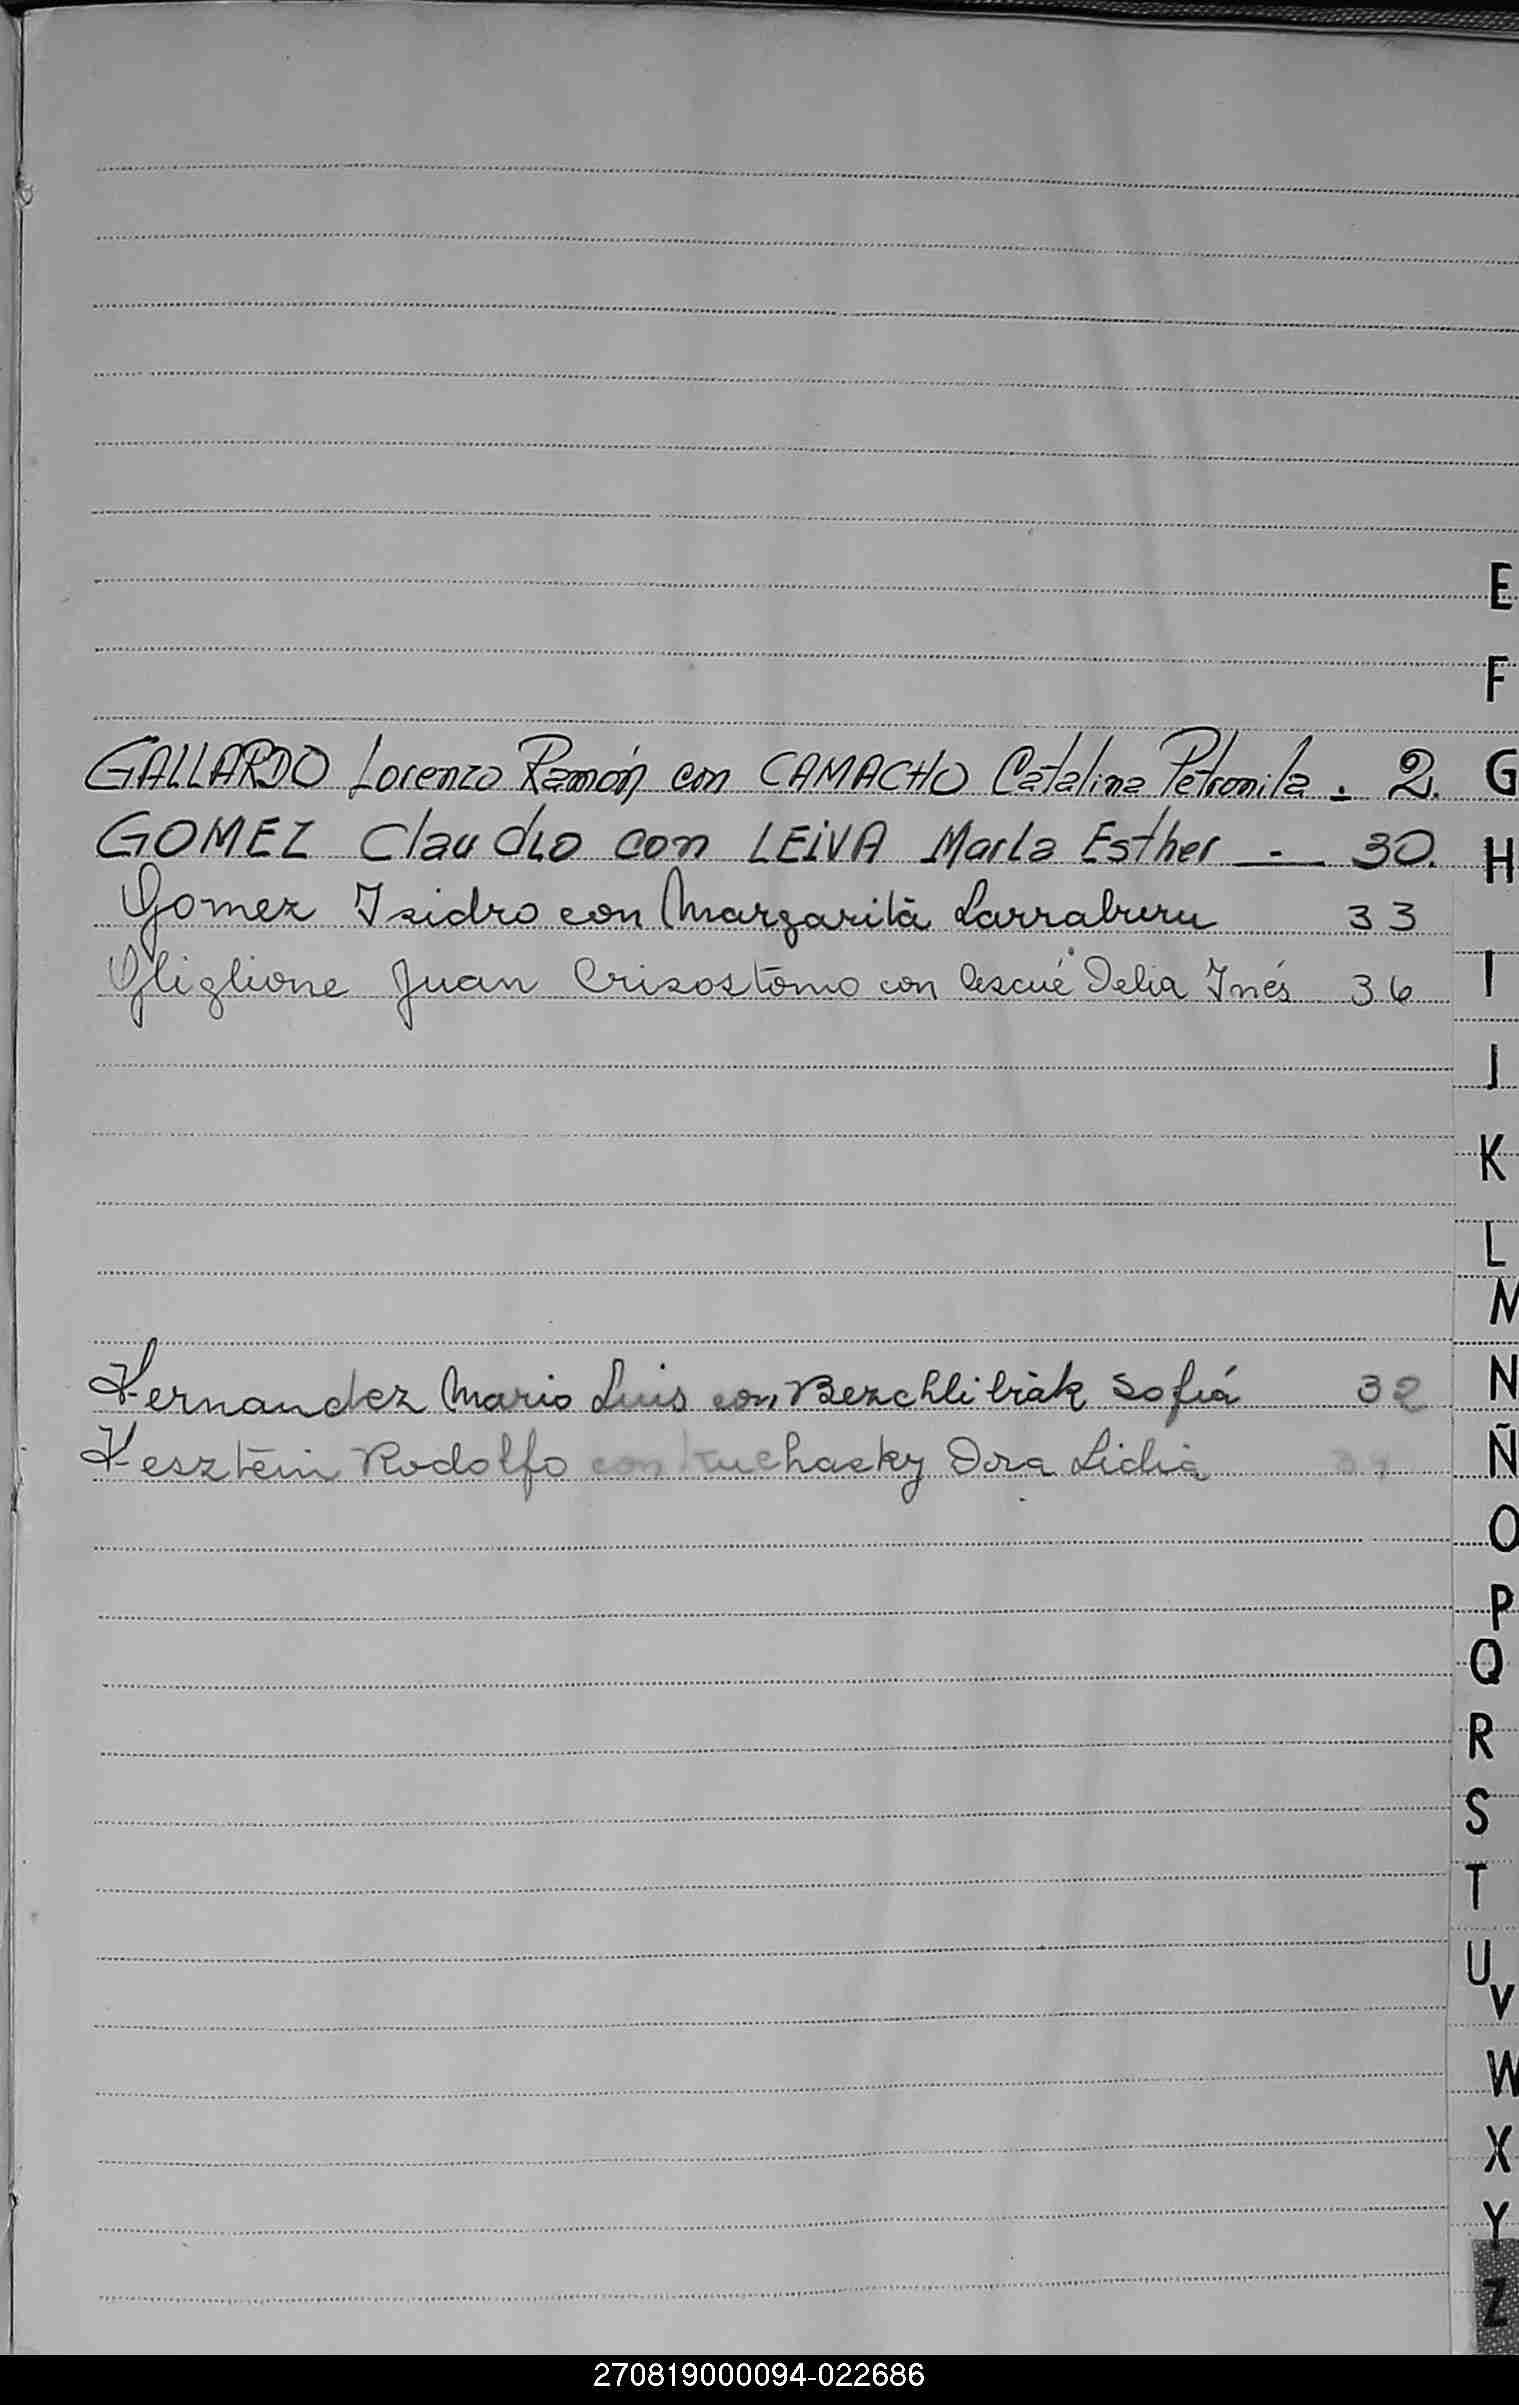 E
F
GALLARDO Lorenzo Ramón con CAMACHO Catalina Petronila. 2.
G
GOMEZ Claudio con LEIVA María Esther — . — 30.
H
Gomez Isidro con Margarita Larraburu 33
Gliglione Juan Crisostomo con Cescué Delia Inés 36
I
J
K
L
M
Hernandez Mario Luis con Bezchlibiak Sofía 32
N
Hesztein Rodolfo con Dora Lidia
Ñ
O
P
Q
R
S
T
U
V
W
X
Y
Z
270819000094-022686